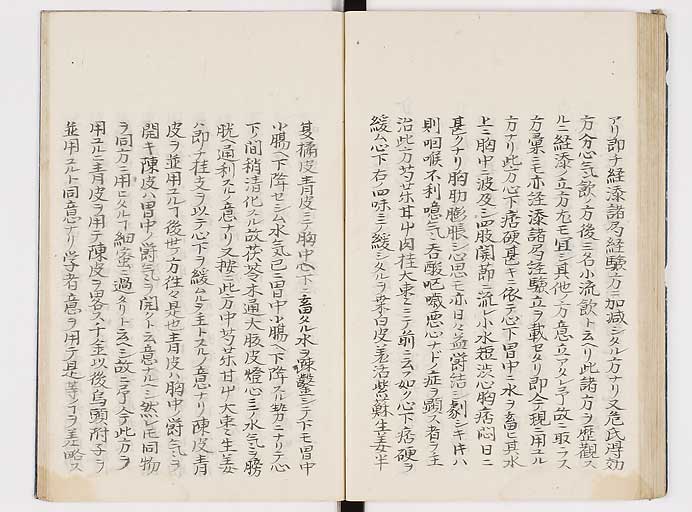 アリ即チ経漆諸氏経験方ニ加減シタル方ナリ又危氏得効
方分心气飲ノ方後ニ名小流飲ト云ヘリ此諸方ヲ歴觀ス
ルニ経漆ノ立方尤モ宜シ其他ノ方意立アタレ𪜈故ニ取ラス
方彙ニモ亦経漆諸氏経驗立ヲ載セタリ即今現ニ用ユル
方ナリ此方心下痞硬甚キニ依テ心下胃中ニ水ヲ畜ヒ其水
上ニ胸中ニ波及シ四肢関節ニ流レ小水短渋心胸痞悶日ニ
甚クナリ胸肋膨脹シ心思モ亦日々益欝結シ劇シキ𪜈ハ
則咽喉不利噫气呑酸呕噦悪心ナドノ症ヲ顕ス者ヲ主
治此方芍薬甘艸肉桂大棗ミテ前ニ云フ如ク心下痞硬ヲ
緩ム心下右ノ四味ニテ緩シタルヲ桑白皮羗活紫蘇生姜半
夏橘皮青皮ニテ胸中心下ニ畜タル水ヲ疎鑿シテ下モ胃中
小腸ヘ下降セシム水気已ニ胃中小腸ヘ下降スル勢ニナリテ心
下ノ間稍清化スル故茯苓木通大腹皮燈心ミテ水気ヲ膀
胱ヘ通利スルノ意ナリ又按ニ此方中芍薬甘艸大棗ニ生姜
ハ即チ桂支ヲ以テ心下ヲ緩ムルヲ主トスルノ意ナリ陳皮青
皮ヲ並用ユルヿ後世ノ方往々是也青皮ハ胸中ノ欝气ヲ
開キ陳皮ハ胃中ノ欝气ヲ開クト云意ナルヘシ然レ𪜈同物
ヲ同方ニ用ヒタルハ細密ニ過タリト云ヘシ故ニ予今此方ヲ
用ユルニ青皮ヲ用テ陳皮ヲ畧ス千金以後烏頭附子ヲ
並用ユルト同意ナリ学者意ヲ用テ是等ノヿヲ差略ス